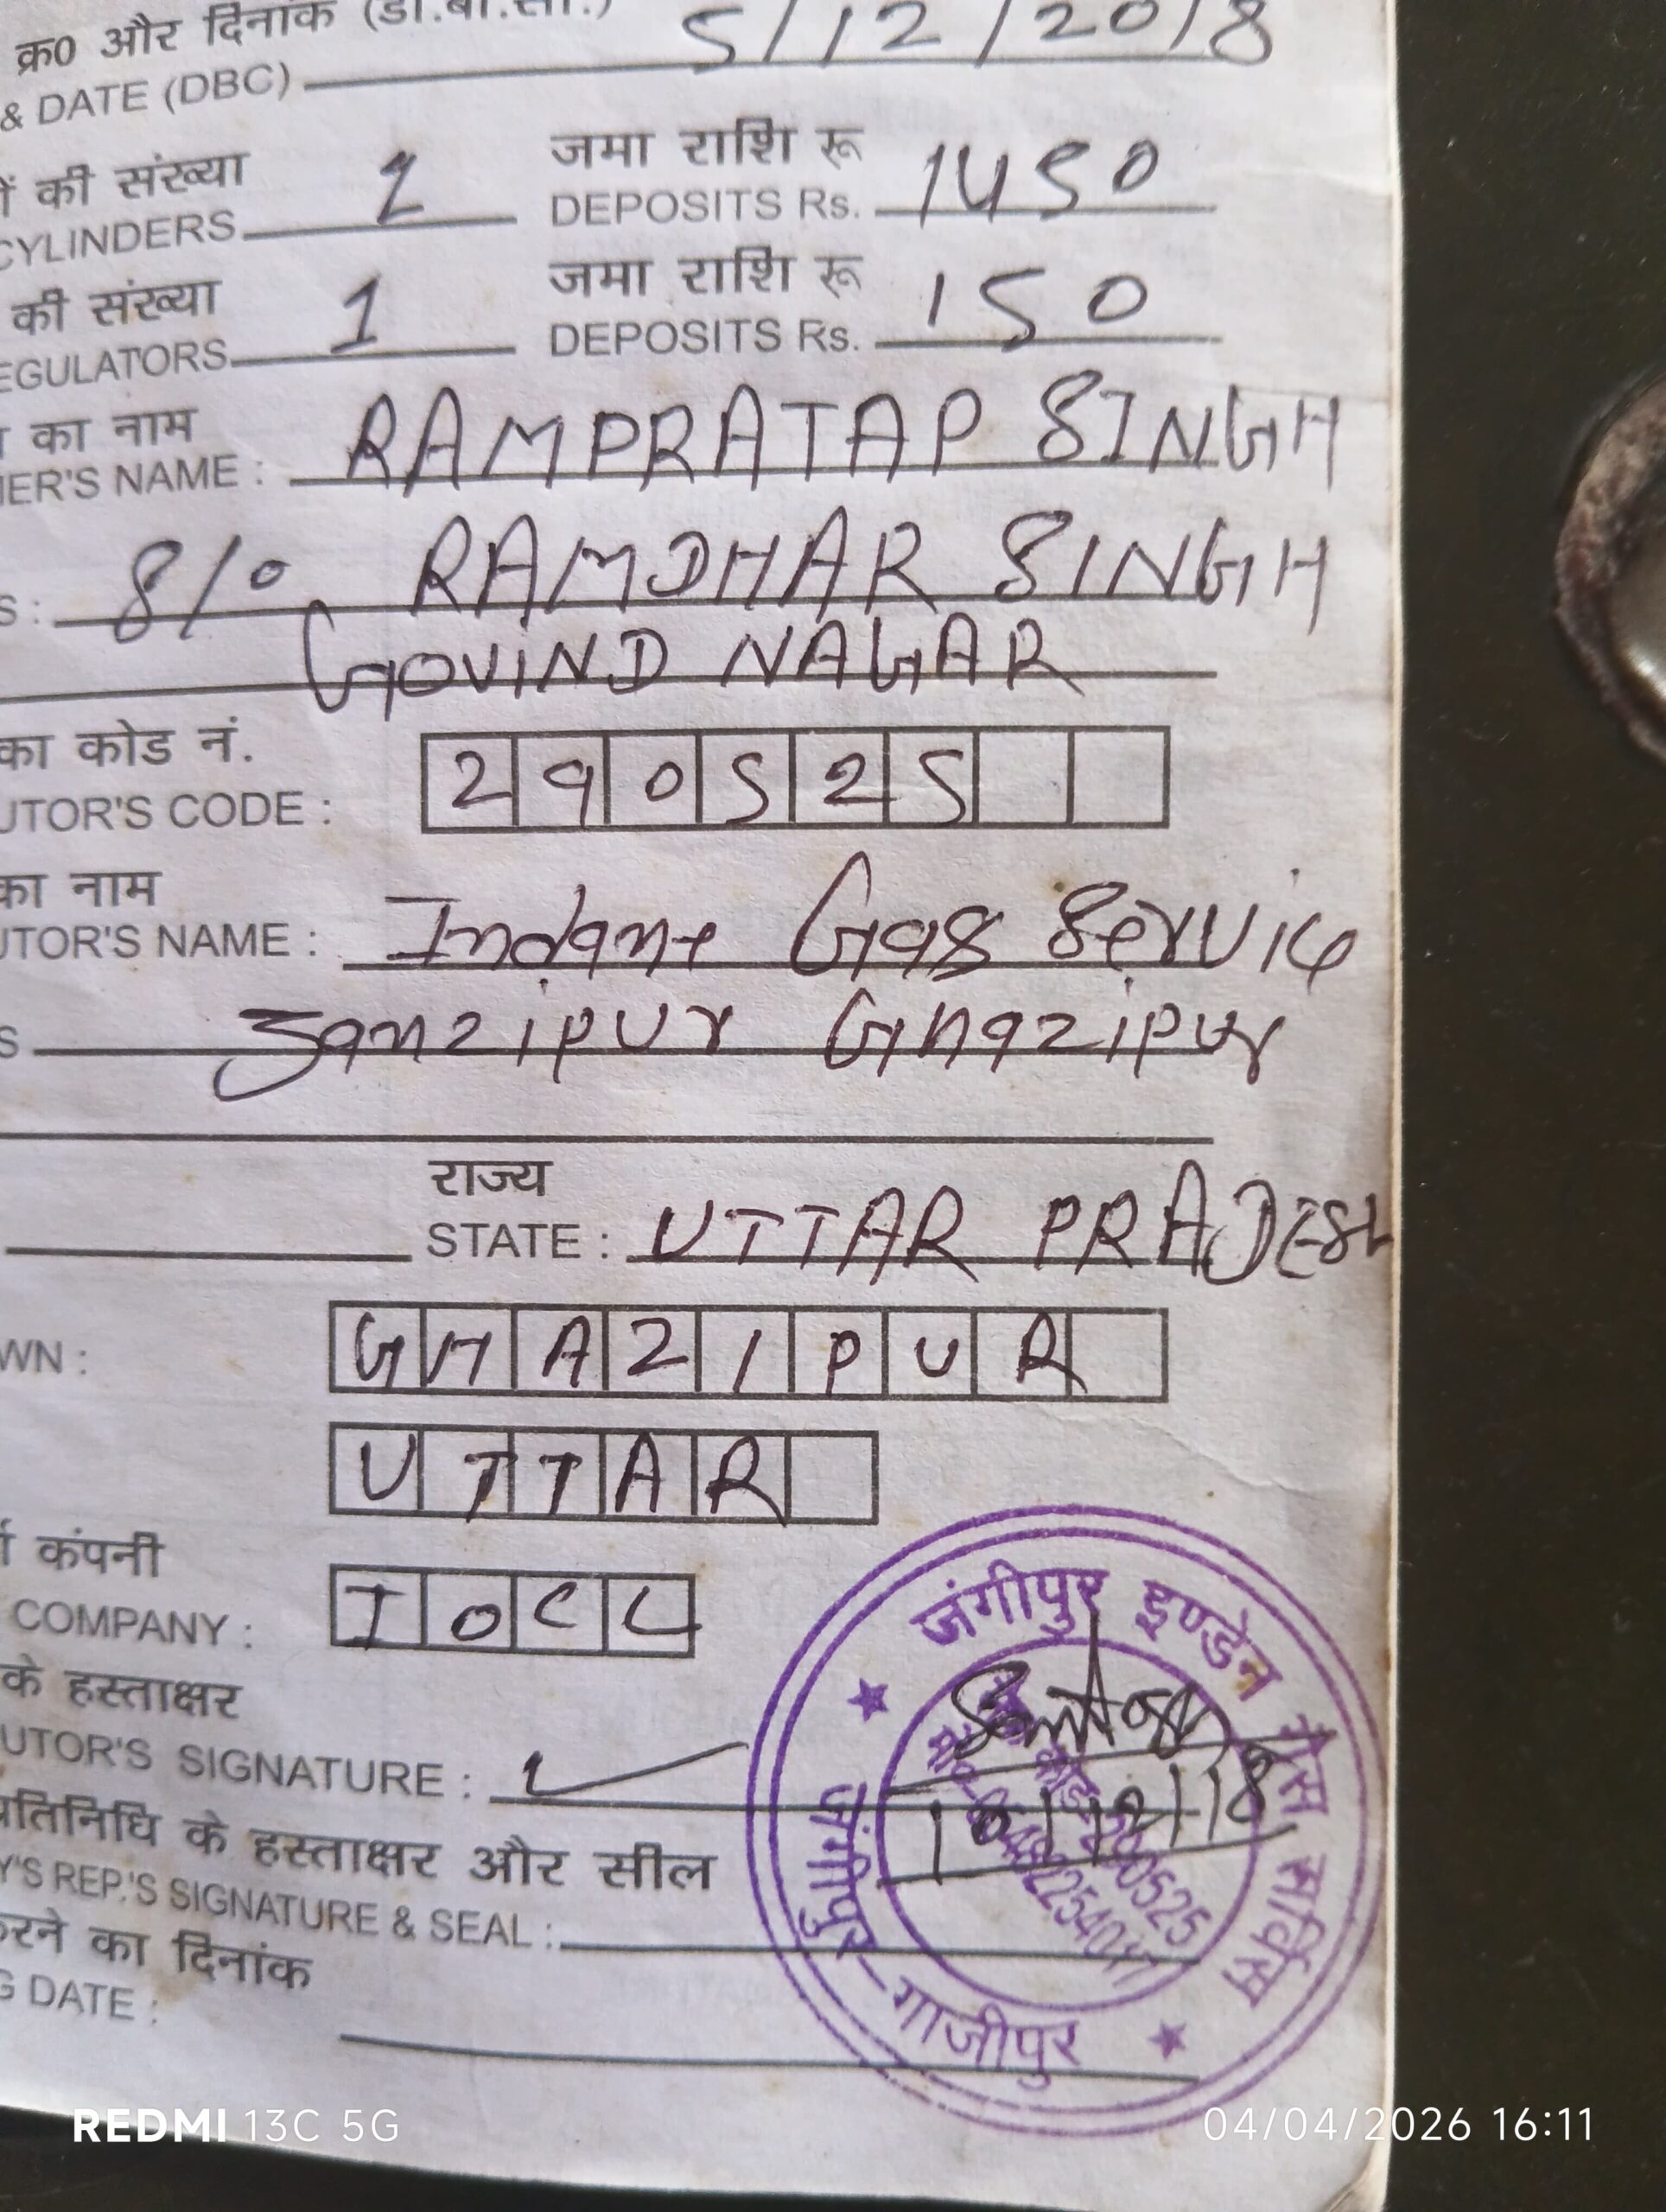 क्र0 और दिनांक (डी.बी.सी.)
& DATE (DBC) 5/12/2018
ों की संख्या जमा राशि रू
CYLINDERS DEPOSITS Rs. 1450
की संख्या 1 जमा राशि रू
EGULATORS DEPOSITS Rs. 150
का नाम
ER'S NAME : RAMPRATAP SINGH
S : S/o RAMDHAR SINGH
GOVIND NAGAR
का कोड नं.
UTOR'S CODE : 290525
का नाम
UTOR'S NAME : Indane Gas Service
S Ghazipur
राज्य
STATE : UTTAR PRADESH
WN : GHAZIPUR
UTTAR
कंपनी
COMPANY : IOCL
के हस्ताक्षर
UTOR'S SIGNATURE :
प्रतिनिधि के हस्ताक्षर और सील
Y'S REP.'S SIGNATURE & SEAL :
करने का दिनांक
G DATE :
जंगीपुर इण्डेन गैस सर्विस
जंगीपुर-गाजीपुर
REDMI 13C 5G 04/04/2026 16:11